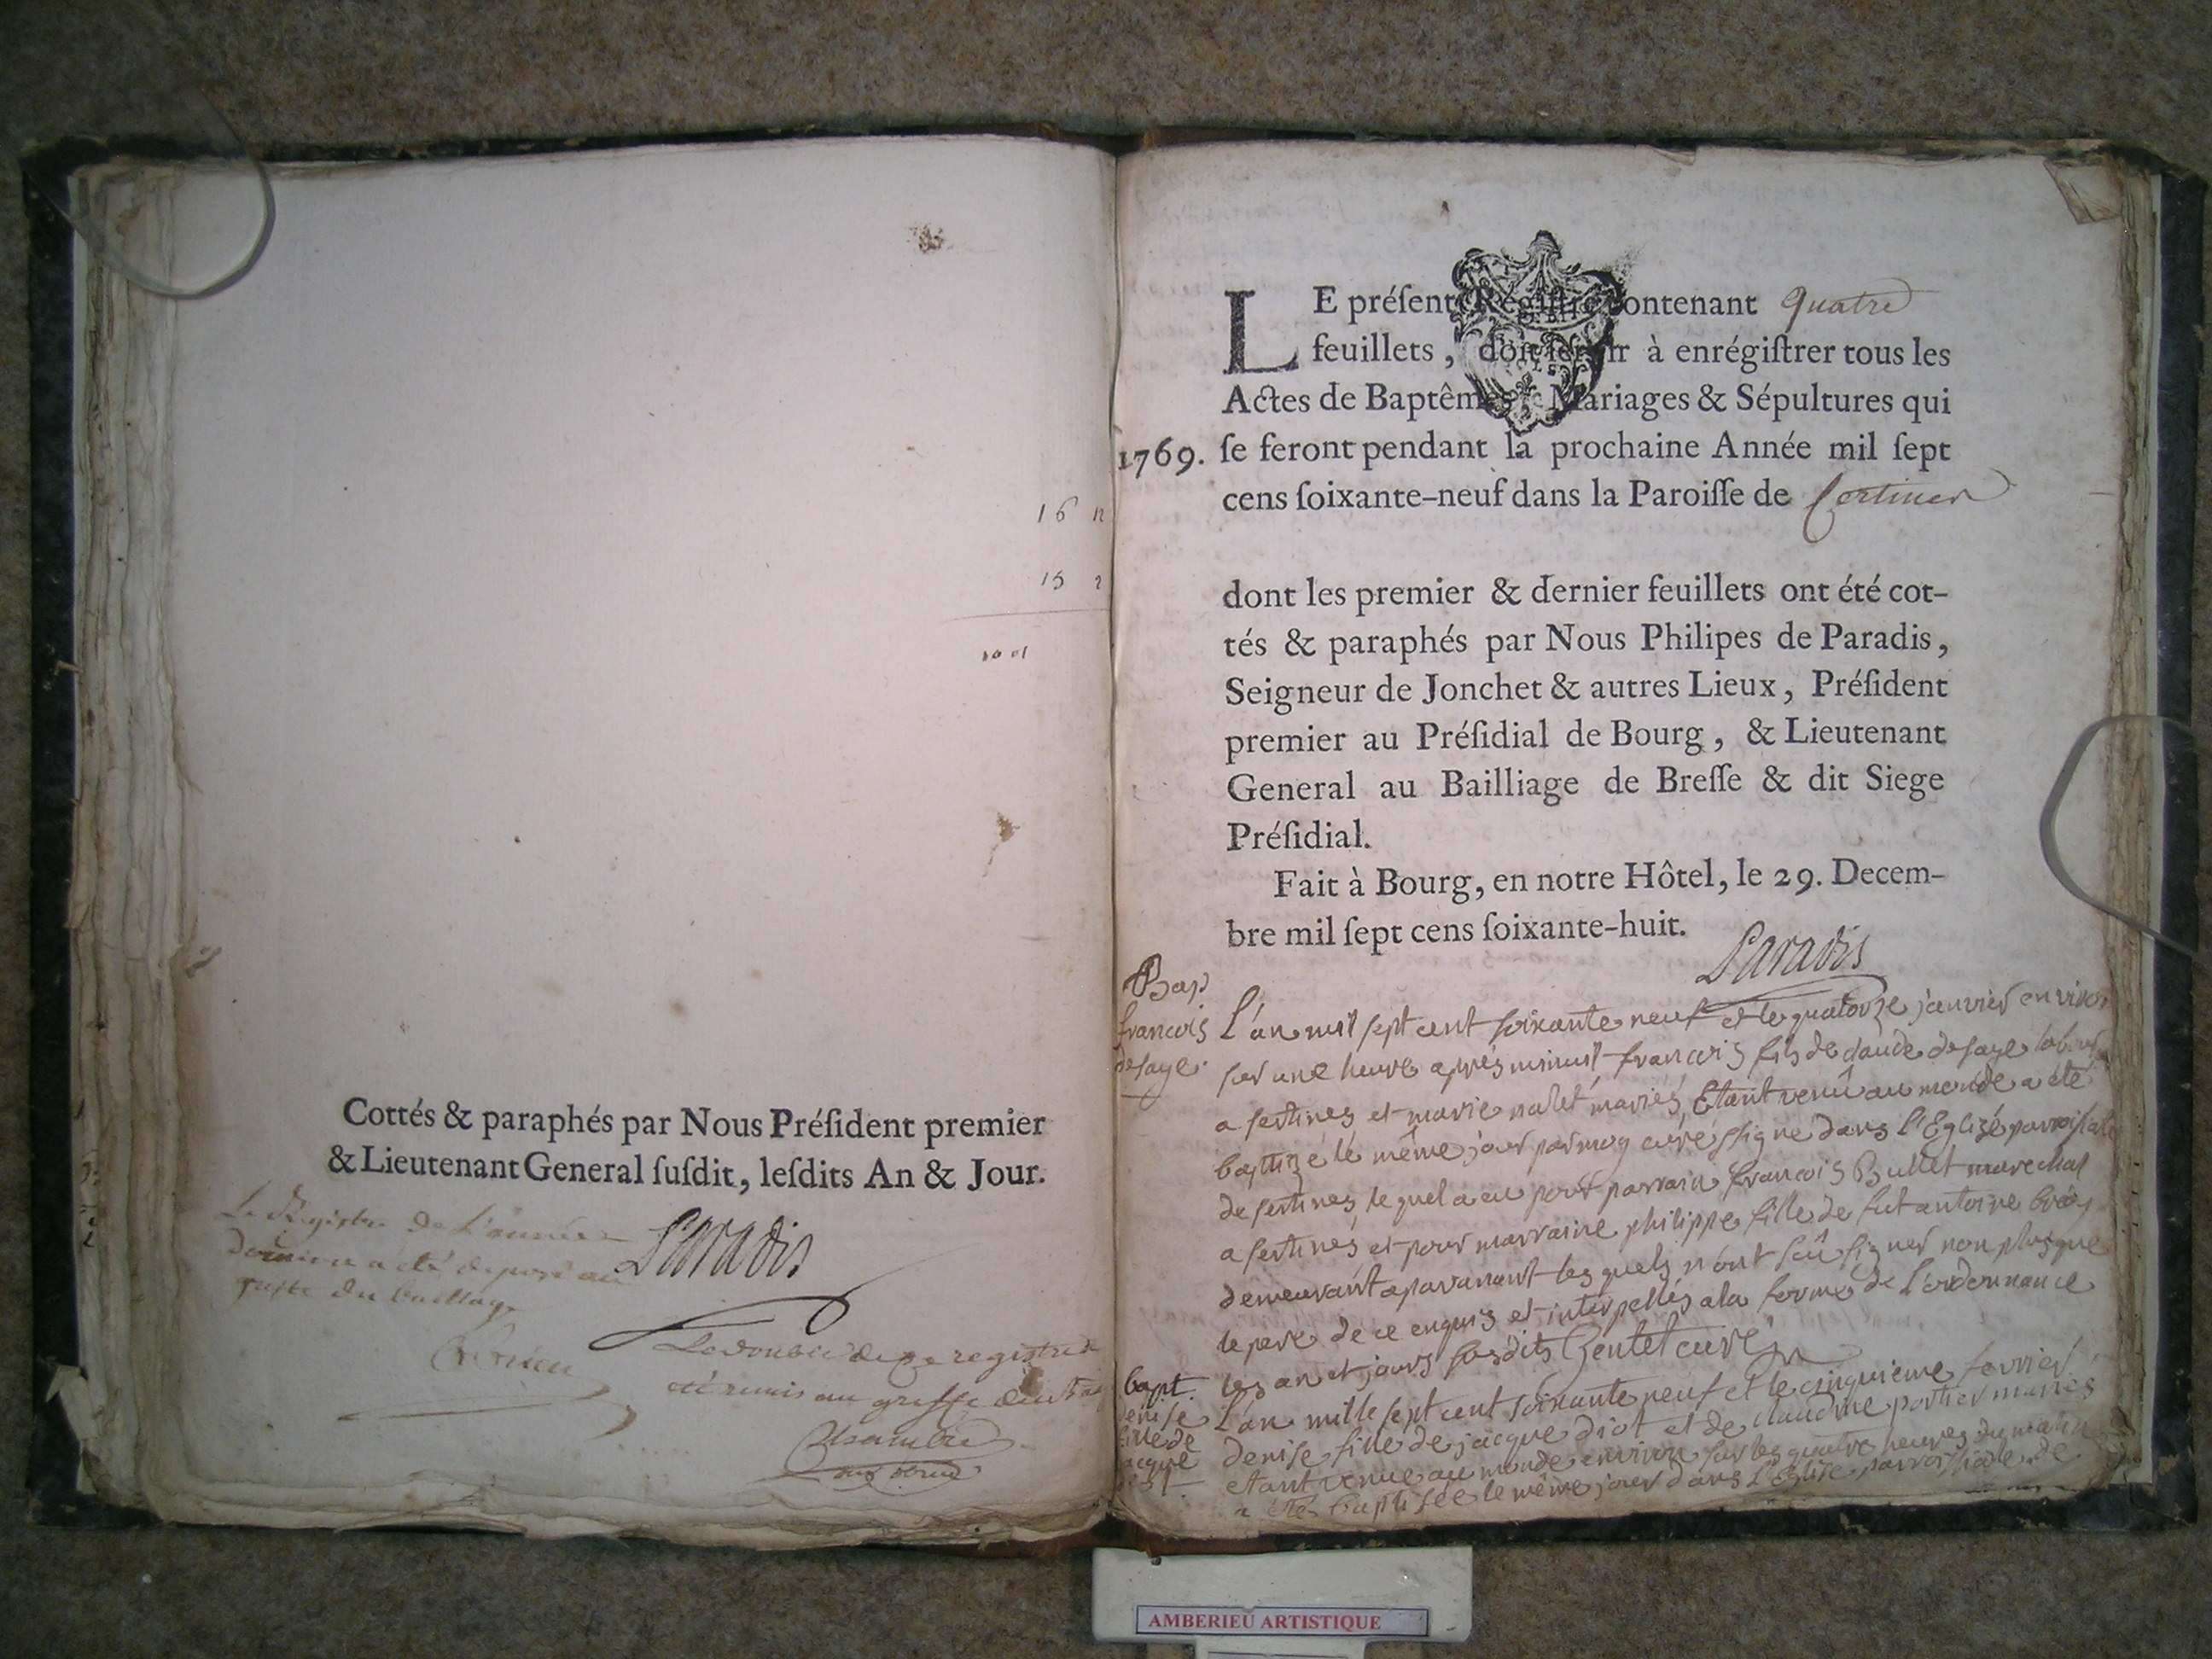 16 12
15 2
Cottés & paraphés par Nous Préſident premier
& Lieutenant General ſuſdit, leſdits An & Jour.
Le Registre de L'année
derniere a été deposé au
greffe du bailliage
Paradis
Le double de ce registre a
été remis au greffe
L E préſent Régiſtre contenant quatre
feuillets, doit ſervir à enrégiſtrer tous les
Actes de Baptêmes, Mariages & Sépultures qui
1769. ſe feront pendant la prochaine Année mil ſept
cens ſoixante-neuf dans la Paroiſſe de Certines
dont les premier & dernier feuillets ont été cot-
tés & paraphés par Nous Philipes de Paradis,
Seigneur de Jonchet & autres Lieux, Préſident
premier au Préſidial de Bourg, & Lieutenant
General au Bailliage de Breſſe & dit Siege
Préſidial.
Fait à Bourg, en notre Hôtel, le 29. Decem-
bre mil ſept cens ſoixante-huit.
Paradis
Bap
francois
desaye
L'an mil sept cent soixante neuf et le quatorze janvier environ
sur une heure après minuit francois fils de claude desaye
a sertines et marie mariés, Etant venû au monde a été
baptizé le même jour par moy curé ssigné dans l'Eglize parroissiale
de sertines, lequel a eu pour parrain francois Bullet marechal
a sertines, et pour marraine philippe fille de fut antoine
demeurant aparavant lesquels n'ont sçû signer non plus que
le pere de ce enquis et interpellés a la forme de L'ordonnance
les an et jours susdits Gentet curé
bapt.
denise
fille de
jacque
diot
L'an mille sept cent soixante neuf et le cinquieme fevrier
denise fille de jacque diot et de claudine portier mariés
etant venue au monde environ sur les quatre heures du matin
a été baptisée le même jour dans l'Eglise parroissiale de
AMBERIEU ARTISTIQUE